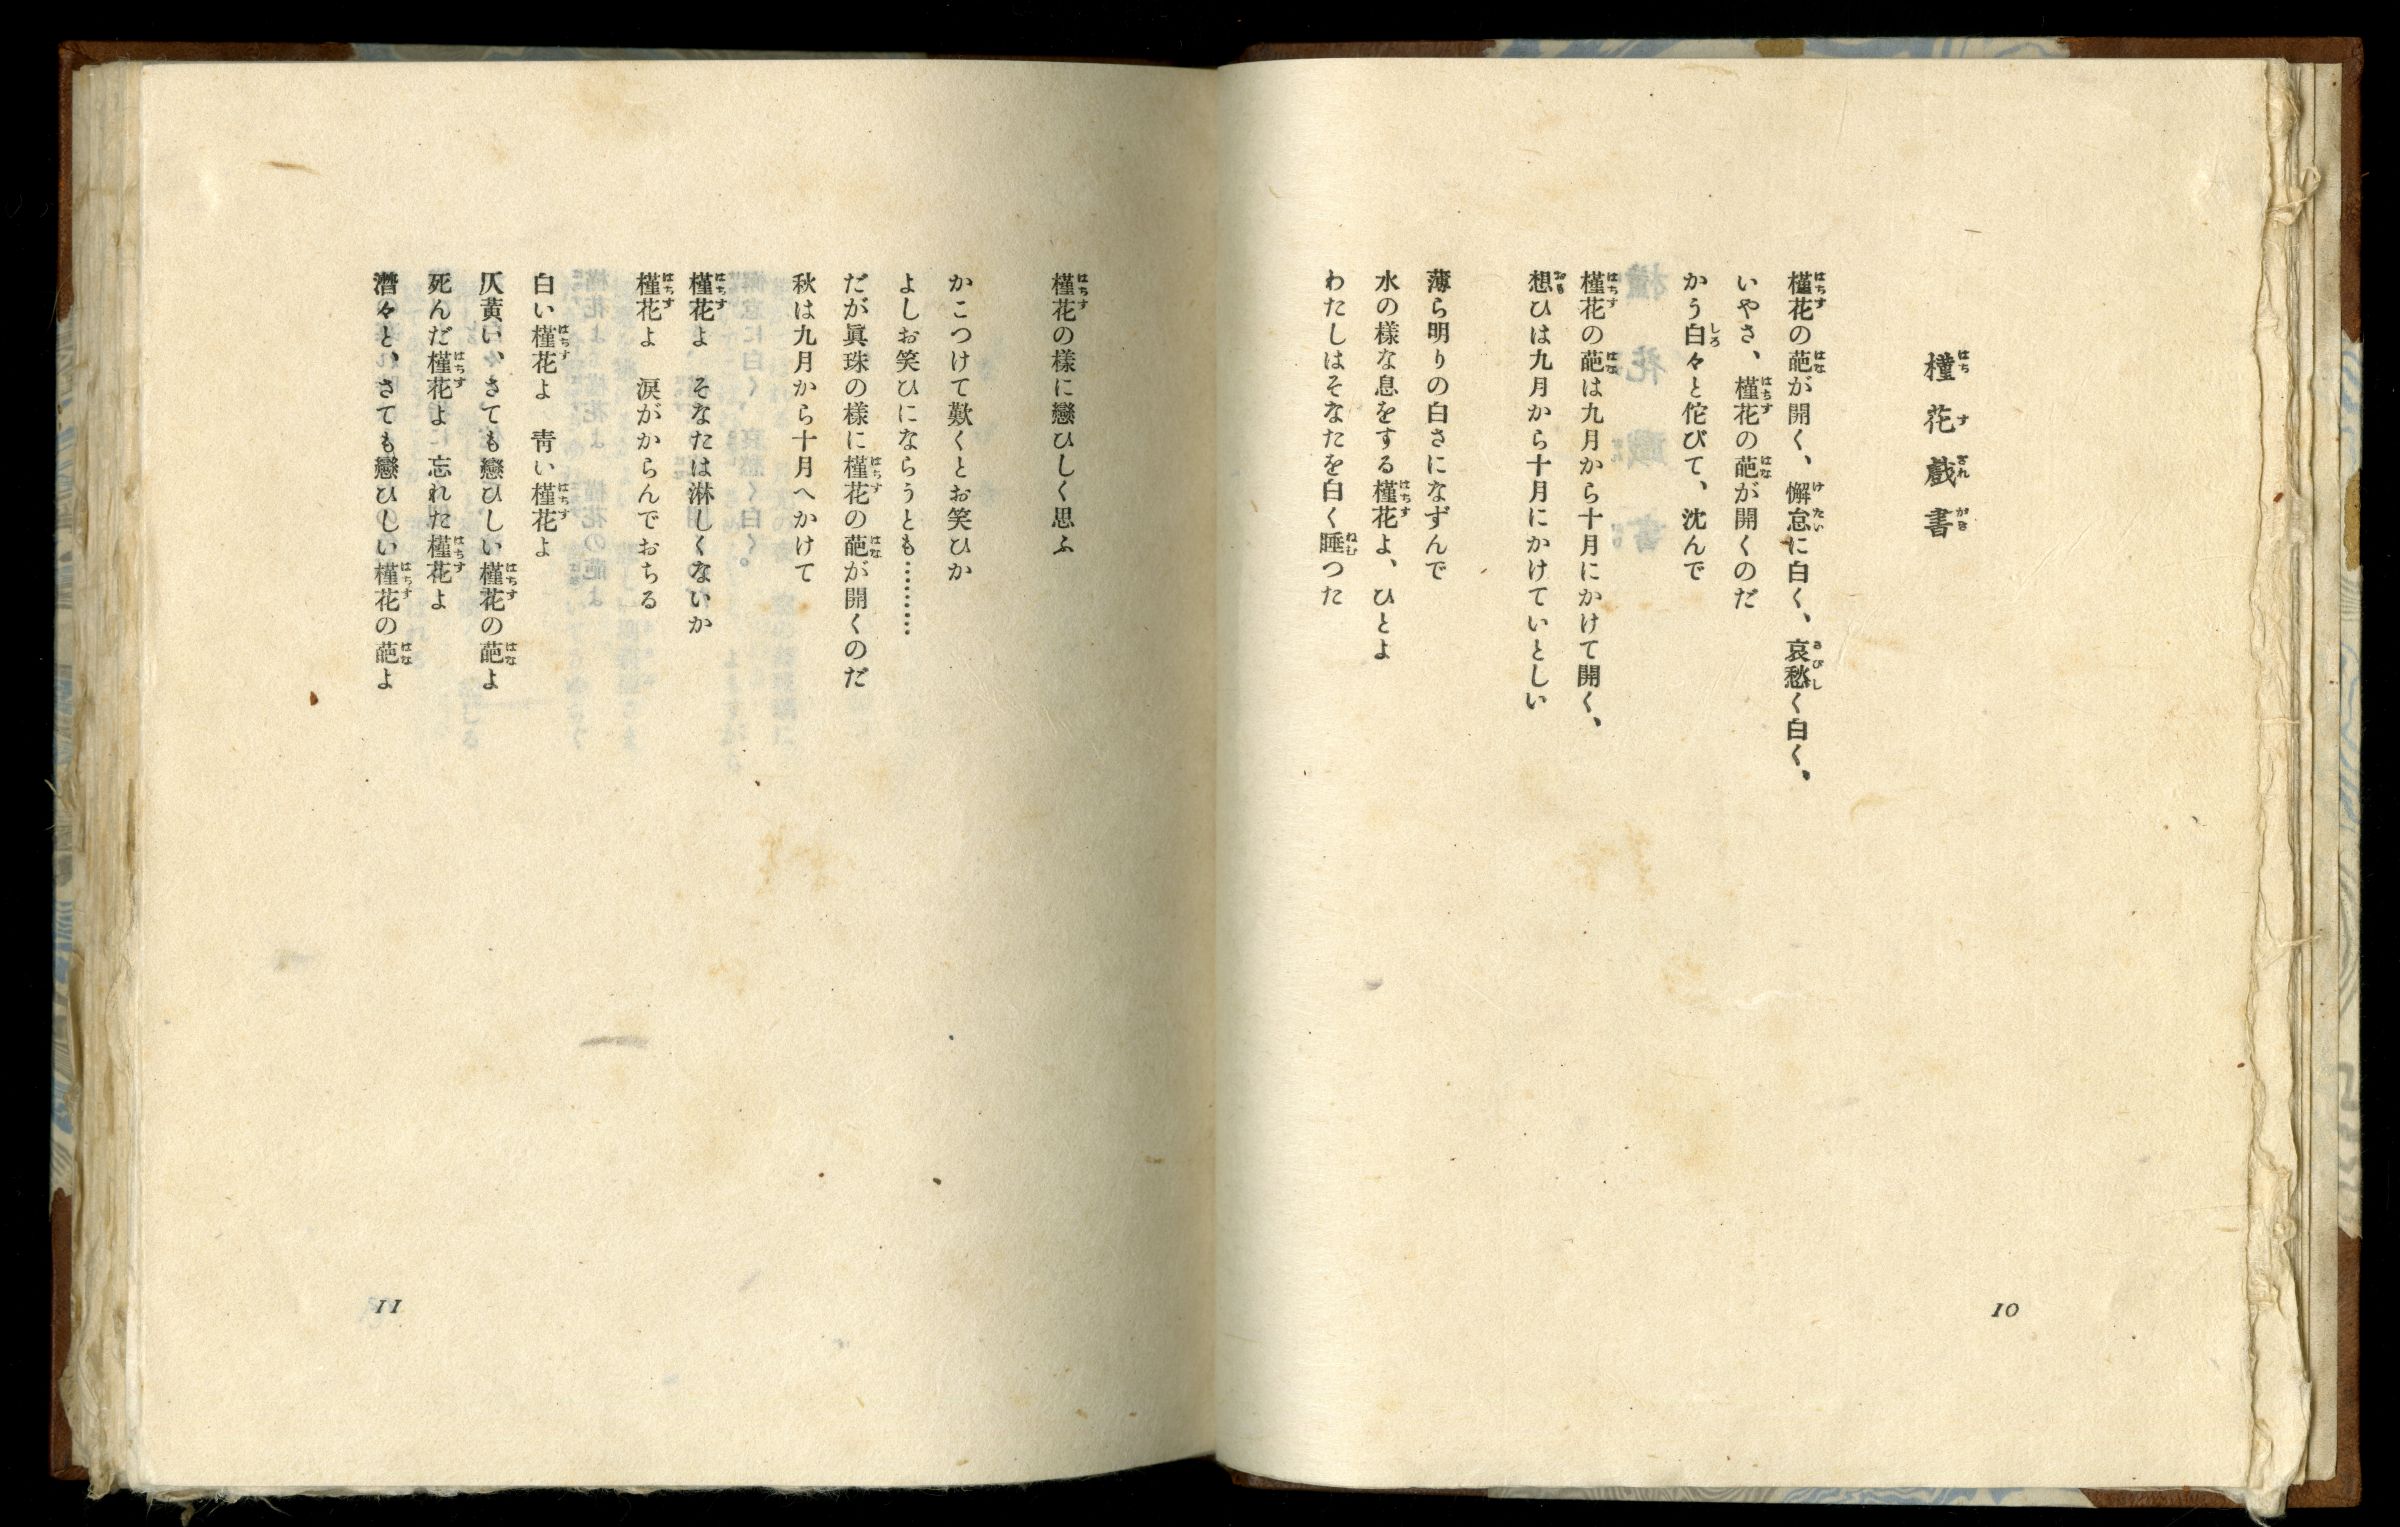 槿花戲書
槿花の葩が開く、懈怠に白く、哀愁く白く、
いやさ、槿花の葩が開くのだ
かう白々と佗びて、沈んで
槿花の葩は九月から十月にかけて開く、
想ひは九月から十月にかけていとしい
薄ら明りの白さになずんで
水の様な息をする槿花よ、ひとよ
わたしはそなたを白く睡つた
10
槿花の様に戀ひしく思ふ
かこつけて歎くとお笑ひか
よしお笑ひにならうとも…………
だが眞珠の様に槿花の葩が開くのだ
秋は九月から十月へかけて
槿花よ　そなたは淋しくないか
槿花よ　涙がからんでおちる
白い槿花よ　靑い槿花よ
仄黄い、さても戀ひしい槿花の葩よ
死んだ槿花よ　忘れた槿花よ
潸々と、さても戀ひしい槿花の葩よ
11